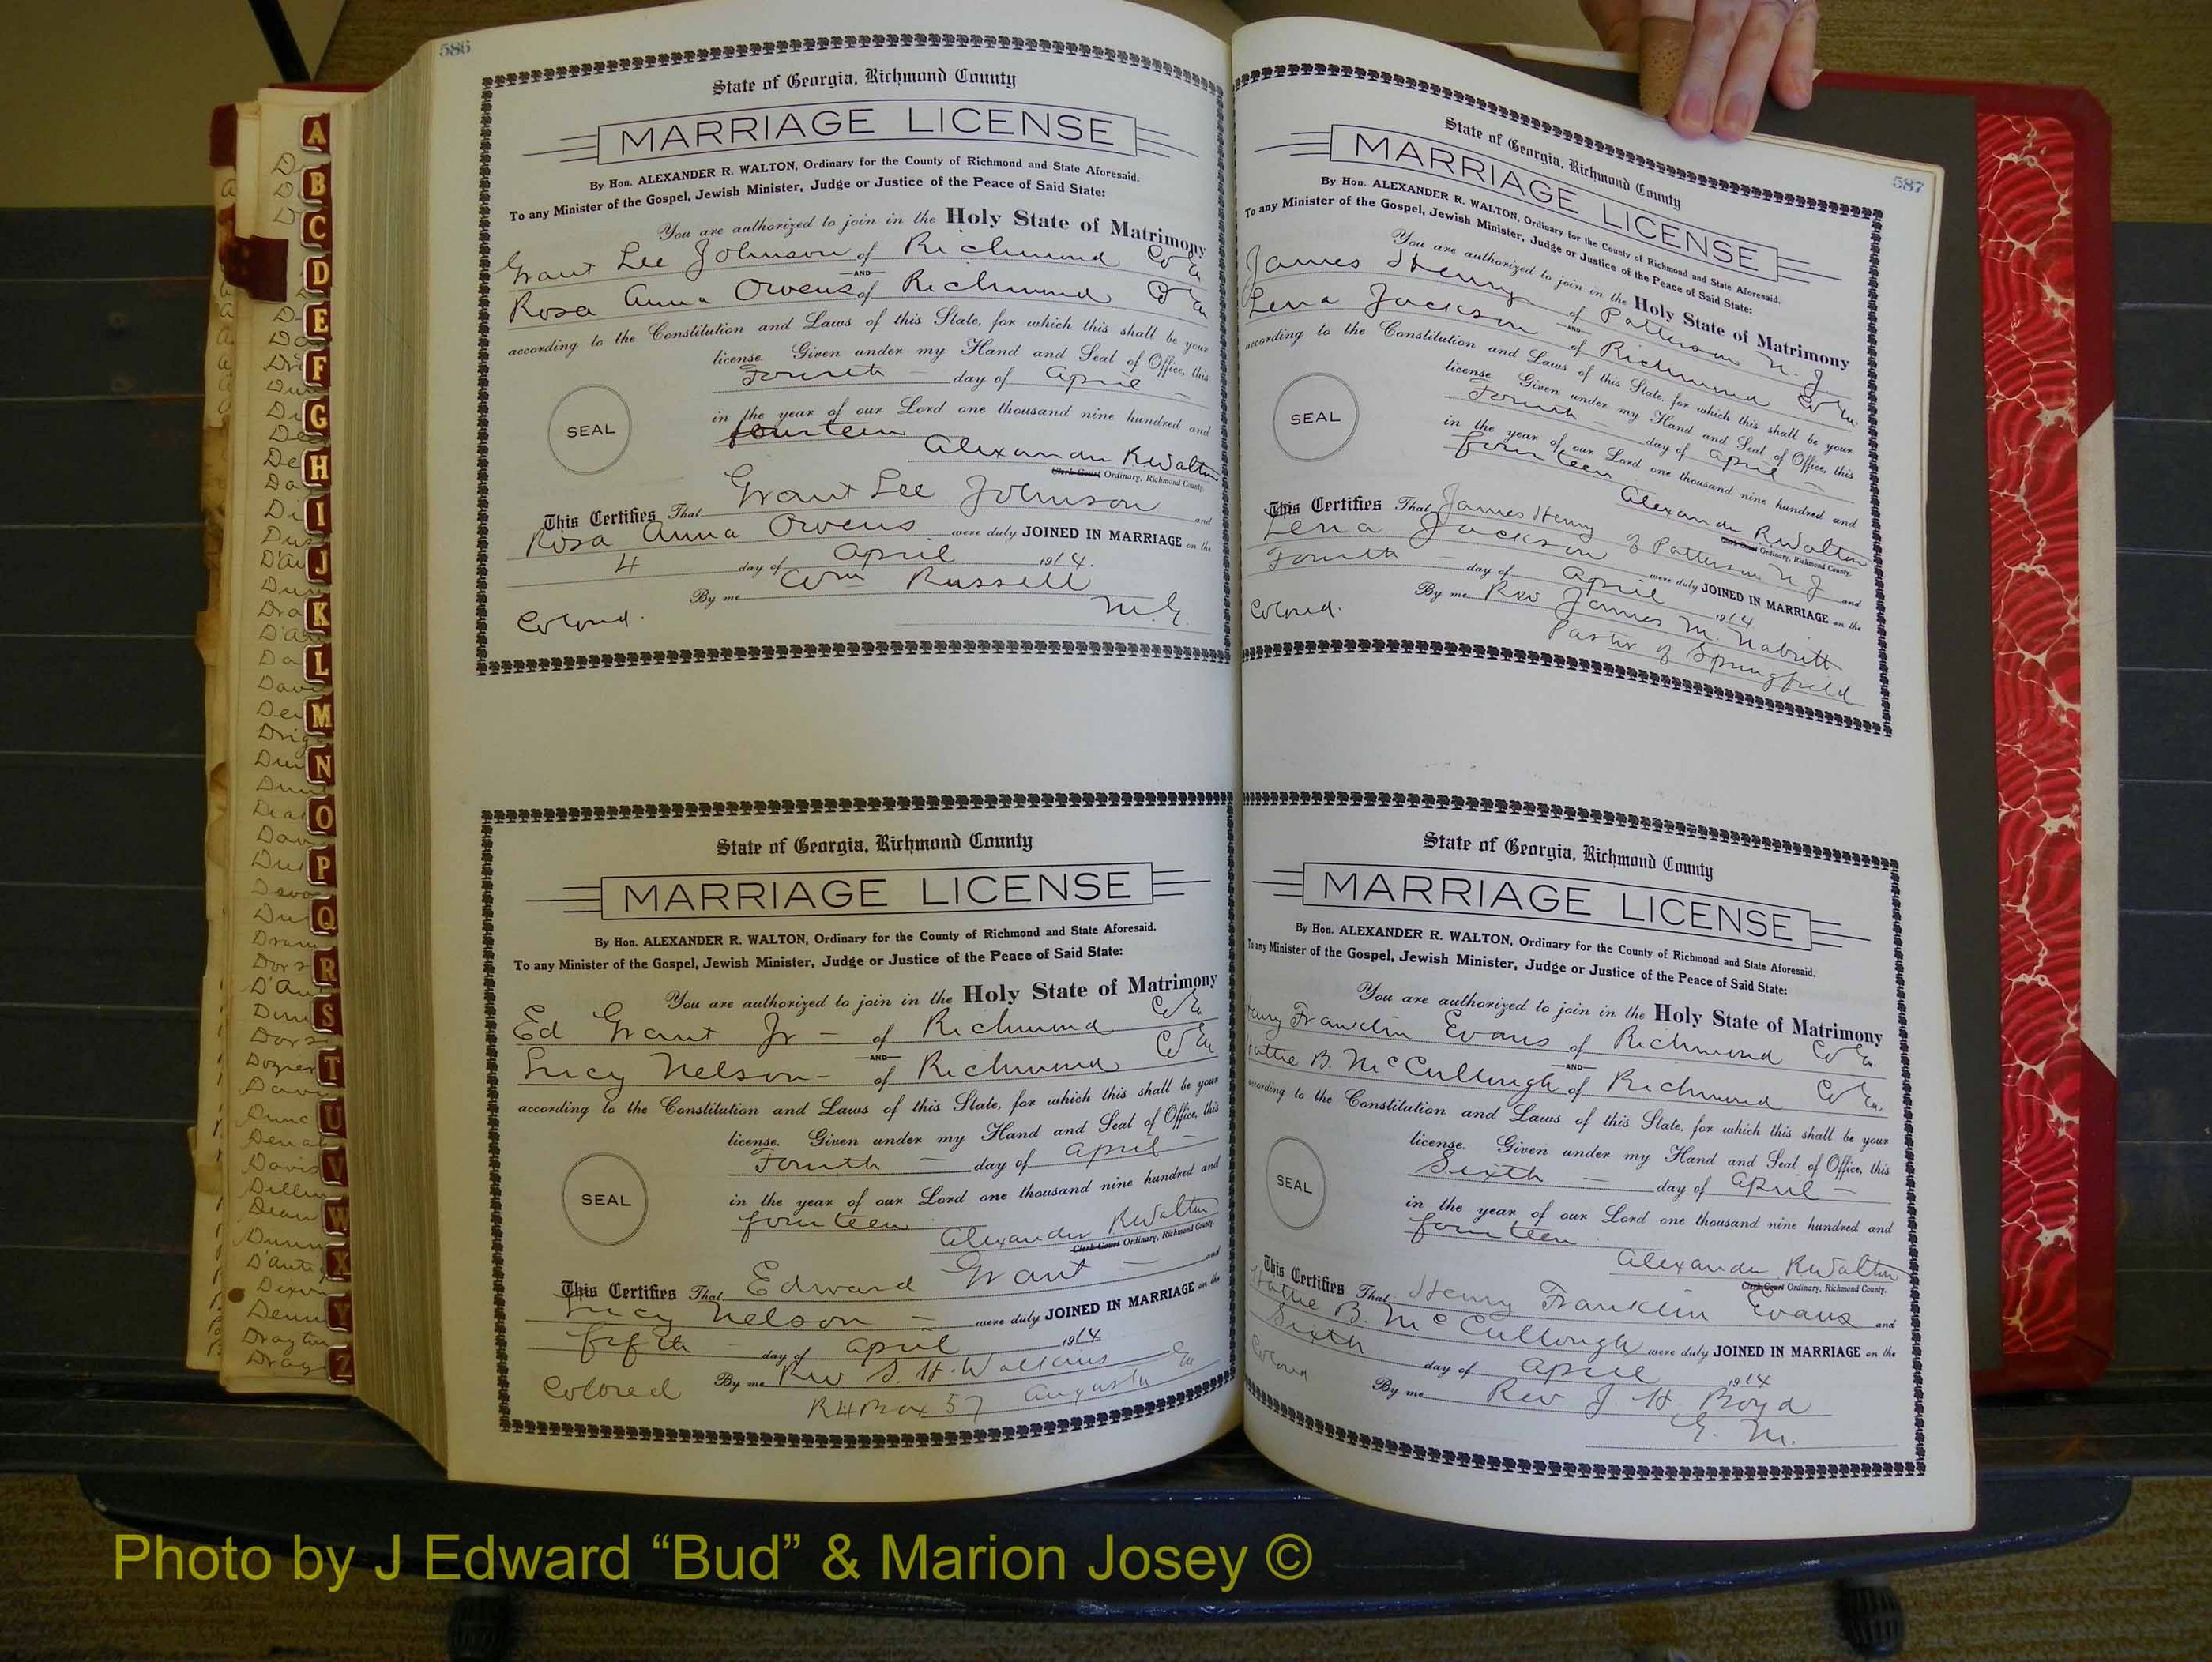 586
State of Georgia, Richmond County
MARRIAGE LICENSE
By Hon. ALEXANDER R. WALTON, Ordinary for the County of Richmond and State Aforesaid.
To any Minister of the Gospel, Jewish Minister, Judge or Justice of the Peace of Said State:
You are authorized to join in the Holy State of Matrimony
Grant Lee Johnson of Richmond Co Ga
AND
Rosa Anna Owens of Richmond Co Ga
according to the Constitution and Laws of this State, for which this shall be your
license. Given under my Hand and Seal of Office, this
Fourth — day of April —
in the year of our Lord one thousand nine hundred and
fourteen
SEAL
Alexander R Walton
Clerk Court Ordinary, Richmond County.
This Certifies That Grant Lee Johnson and
Rosa Anna Owens were duly JOINED IN MARRIAGE on the
4 day of April 1914.
By me Wm Russell
Colored. M.G.
State of Georgia, Richmond County
MARRIAGE LICENSE
By Hon. ALEXANDER R. WALTON, Ordinary for the County of Richmond and State Aforesaid.
To any Minister of the Gospel, Jewish Minister, Judge or Justice of the Peace of Said State:
You are authorized to join in the Holy State of Matrimony
Ed Grant Jr — of Richmond Co Ga
AND
Lucy Nelson — of Richmond Co Ga
according to the Constitution and Laws of this State, for which this shall be your
license. Given under my Hand and Seal of Office, this
Fourth — day of April —
in the year of our Lord one thousand nine hundred and
fourteen
SEAL
Alexander R Walton
Clerk Court Ordinary, Richmond County.
This Certifies That Edward Grant — and
Lucy Nelson — were duly JOINED IN MARRIAGE on the
fifth day of April 1914
By me Rev S. H. Watkins
Colored R4 Box 57 Augusta Ga
587
State of Georgia, Richmond County
MARRIAGE LICENSE
By Hon. ALEXANDER R. WALTON, Ordinary for the County of Richmond and State Aforesaid.
To any Minister of the Gospel, Jewish Minister, Judge or Justice of the Peace of Said State:
You are authorized to join in the Holy State of Matrimony
James Henry of Patterson N. J
AND
Lena Jackson of Richmond Co Ga
according to the Constitution and Laws of this State, for which this shall be your
license. Given under my Hand and Seal of Office, this
Fourth — day of April —
in the year of our Lord one thousand nine hundred and
fourteen
SEAL
Alexander R Walton
Clerk Court Ordinary, Richmond County.
This Certifies That James Henry of Patterson N J and
Lena Jackson were duly JOINED IN MARRIAGE on the
Fourth — day of April 1914
By me Rev James M. Nabritt
Colored. Pastor of Springfield
State of Georgia, Richmond County
MARRIAGE LICENSE
By Hon. ALEXANDER R. WALTON, Ordinary for the County of Richmond and State Aforesaid.
To any Minister of the Gospel, Jewish Minister, Judge or Justice of the Peace of Said State:
You are authorized to join in the Holy State of Matrimony
Henry Franklin Evans of Richmond Co Ga.
AND
Hattie B. McCullough of Richmond Co Ga.
according to the Constitution and Laws of this State, for which this shall be your
license. Given under my Hand and Seal of Office, this
Sixth — day of April —
in the year of our Lord one thousand nine hundred and
fourteen
SEAL
Alexander R Walton
Clerk Court Ordinary, Richmond County.
This Certifies That Henry Franklin Evans and
Hattie B. McCullough were duly JOINED IN MARRIAGE on the
Sixth day of April 1914
Colored
By me Rev J. H. Boyd
G. M.
A
B
C
D
E
F
G
H
I
J
K
L
M
N
O
P
Q
R
S
T
U
V
W
X
Y
Z
Dozier
Davis
Photo by J Edward “Bud” & Marion Josey ©